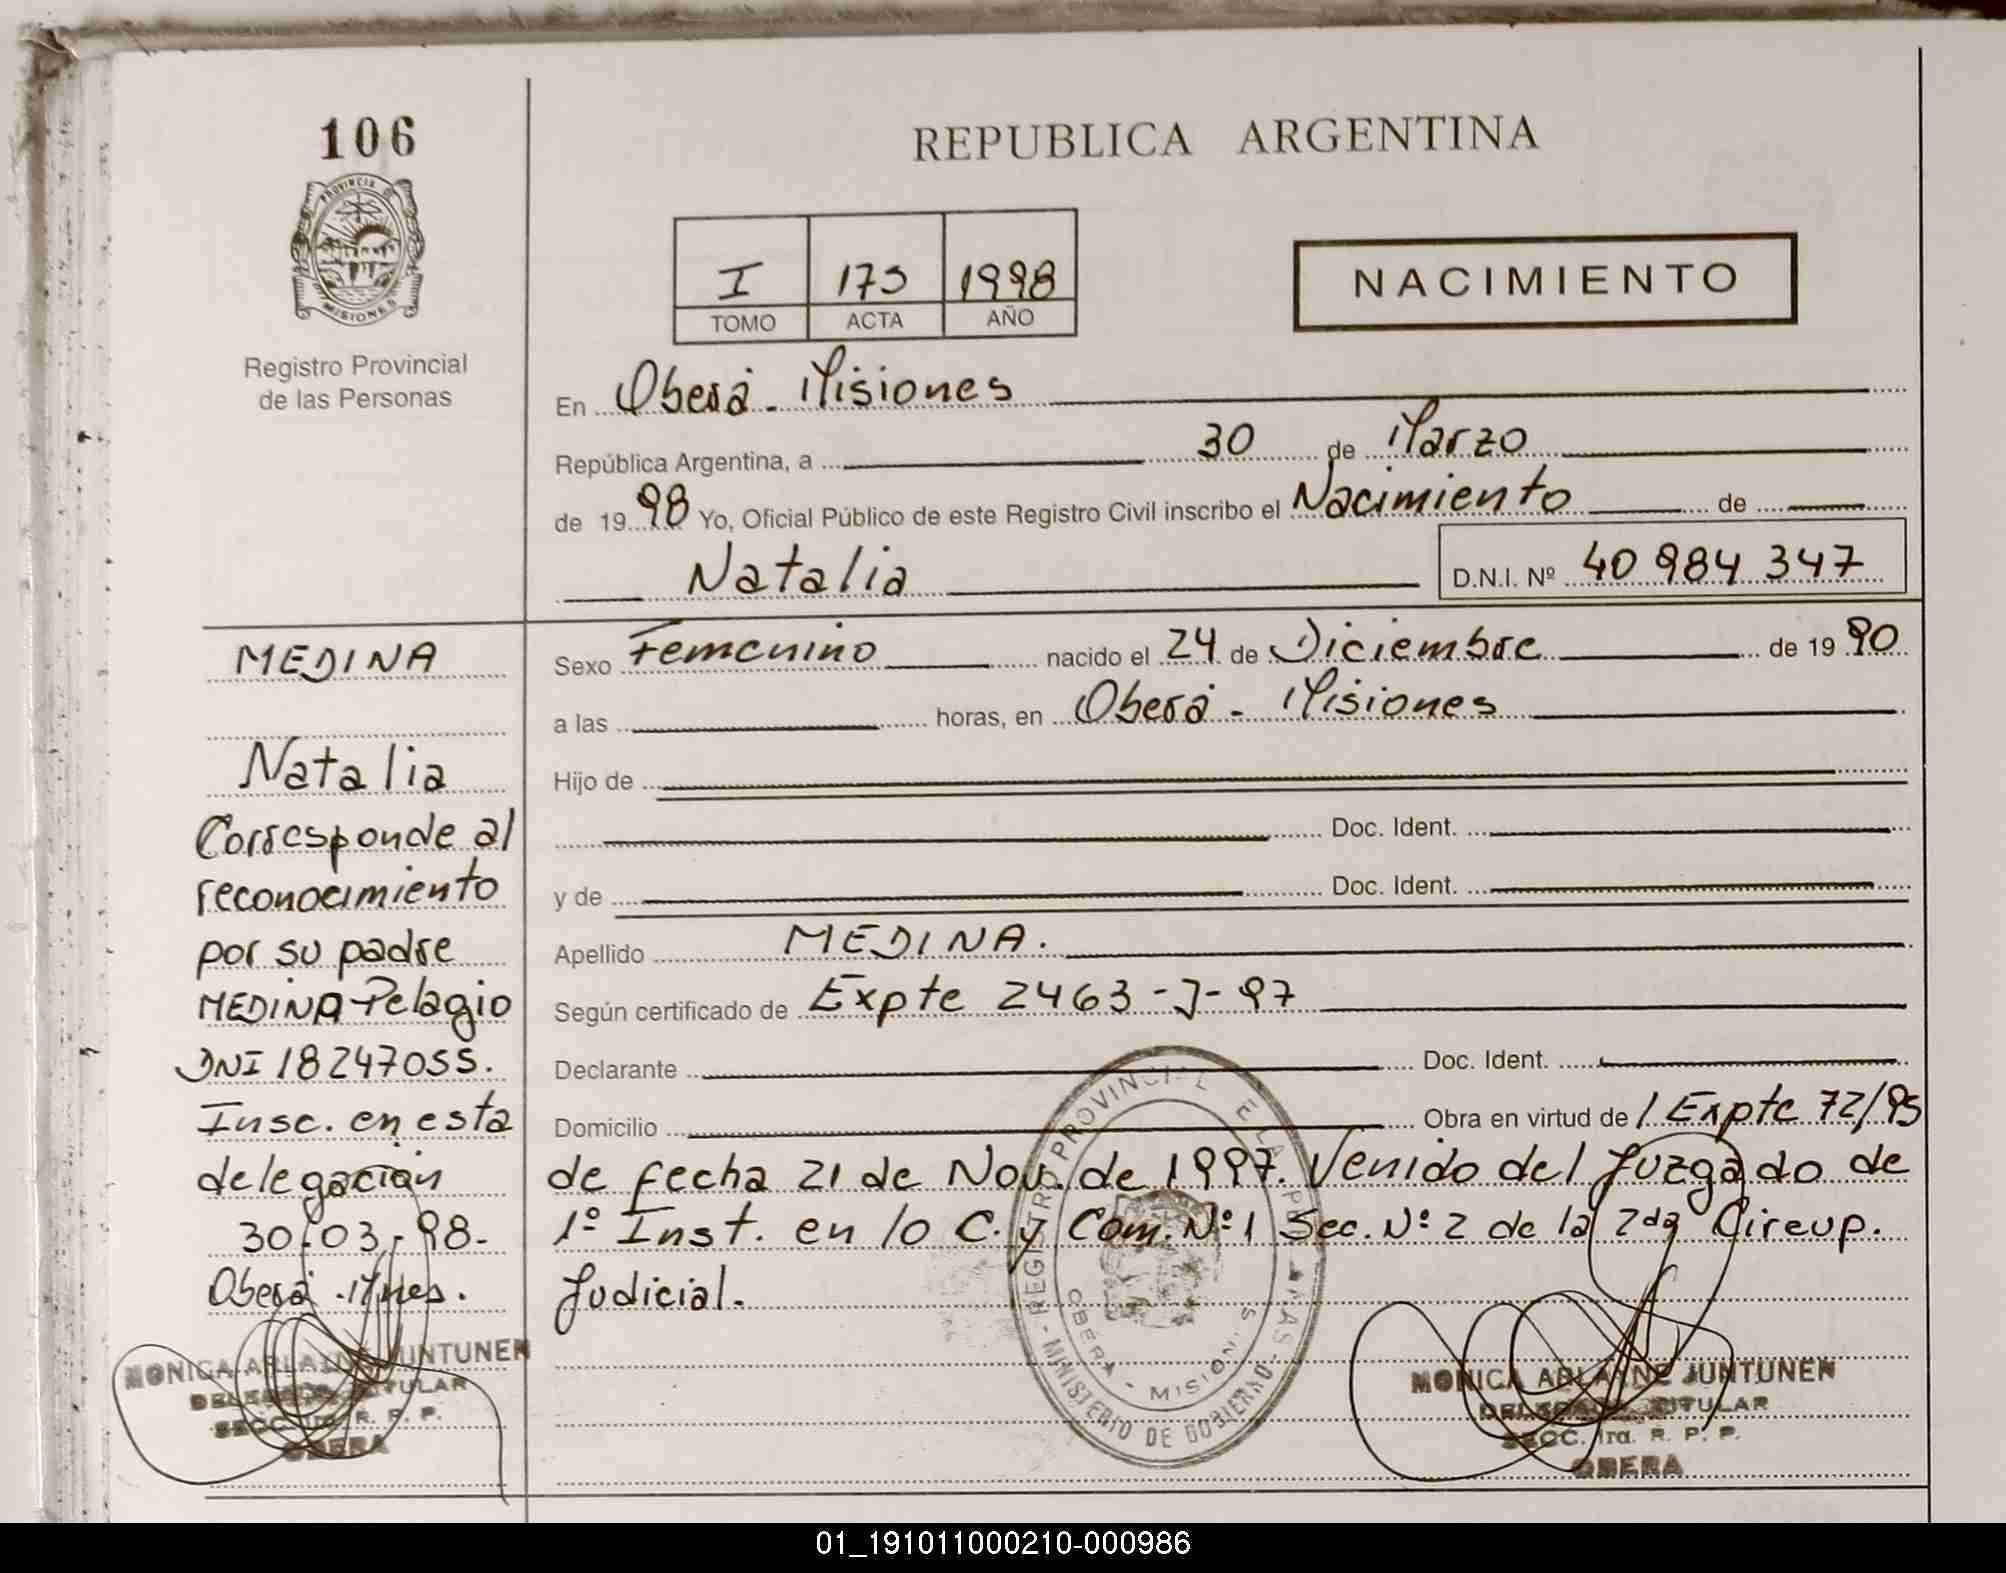 106
PROVINCIA D
MISIONES
Registro Provincial
de las Personas
REPUBLICA ARGENTINA
I 173 1998
TOMO ACTA AÑO
NACIMIENTO
En Oberá - Misiones
República Argentina, a 30 de Marzo
de 1998 Yo, Oficial Público de este Registro Civil inscribo el Nacimiento de
Natalia D.N.I. Nº 40 984 347
Sexo Femenino nacido el 24 de Diciembre de 1990
a las horas, en Oberá - Misiones
Hijo de
Doc. Ident.
y de Doc. Ident.
Apellido MEDINA.
Según certificado de Expte 2463-J-97
Declarante Doc. Ident.
Domicilio Obra en virtud de / Expte 72/95
de fecha 21 de Nov. de 1997. Venido del Juzgado de
1º Inst. en lo C. y Com. Nº 1 Sec. Nº 2 de la 2da Circup.
Judicial.
MEDINA
Natalia
Corresponde al
reconocimiento
por su padre
MEDINA Pelagio
DNI 18247055.
Insc. en esta
delegación
30-03-98-
Oberá - Mnes.
MONICA ARLAINE JUNTUNEN
DELEGADA TITULAR
SECC. 1ra. R. P. P.
OBERA
REGISTRO PROVINCIAL DE LAS PERSONAS
MINISTERIO DE GOBIERNO
OBERA - MISIONES
MONICA ARLAINE JUNTUNEN
DELEGADA TITULAR
SECC. 1ra. R. P. P.
OBERA
01_191011000210-000986